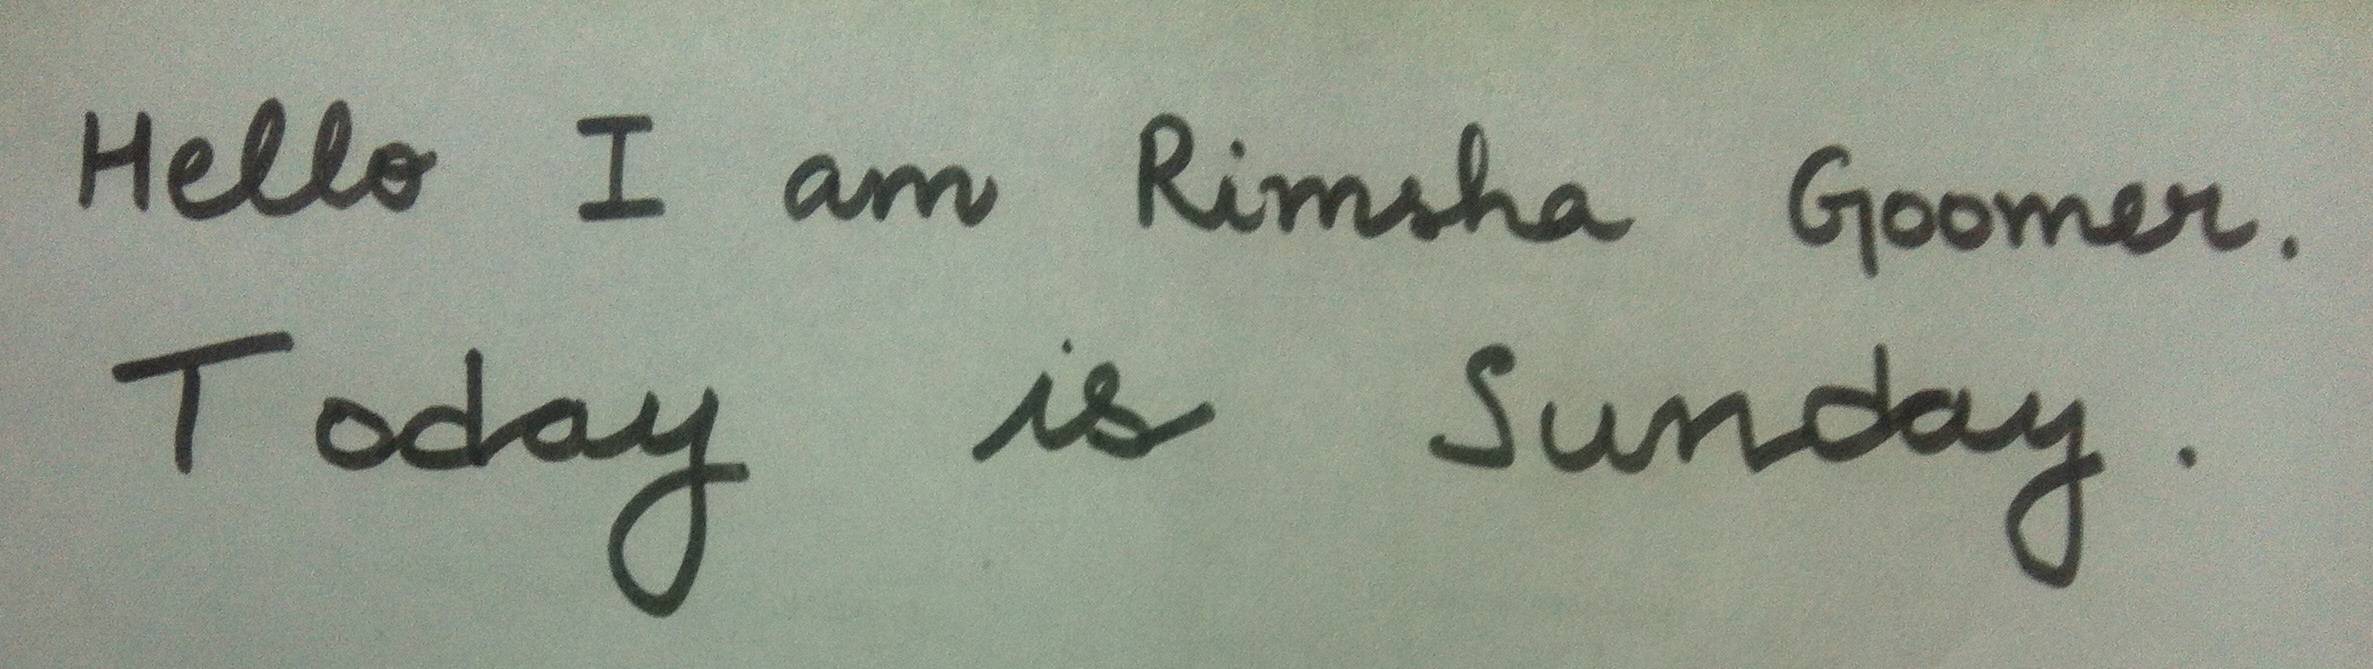 Hello I am Rimsha Goomer.
Today is Sunday.